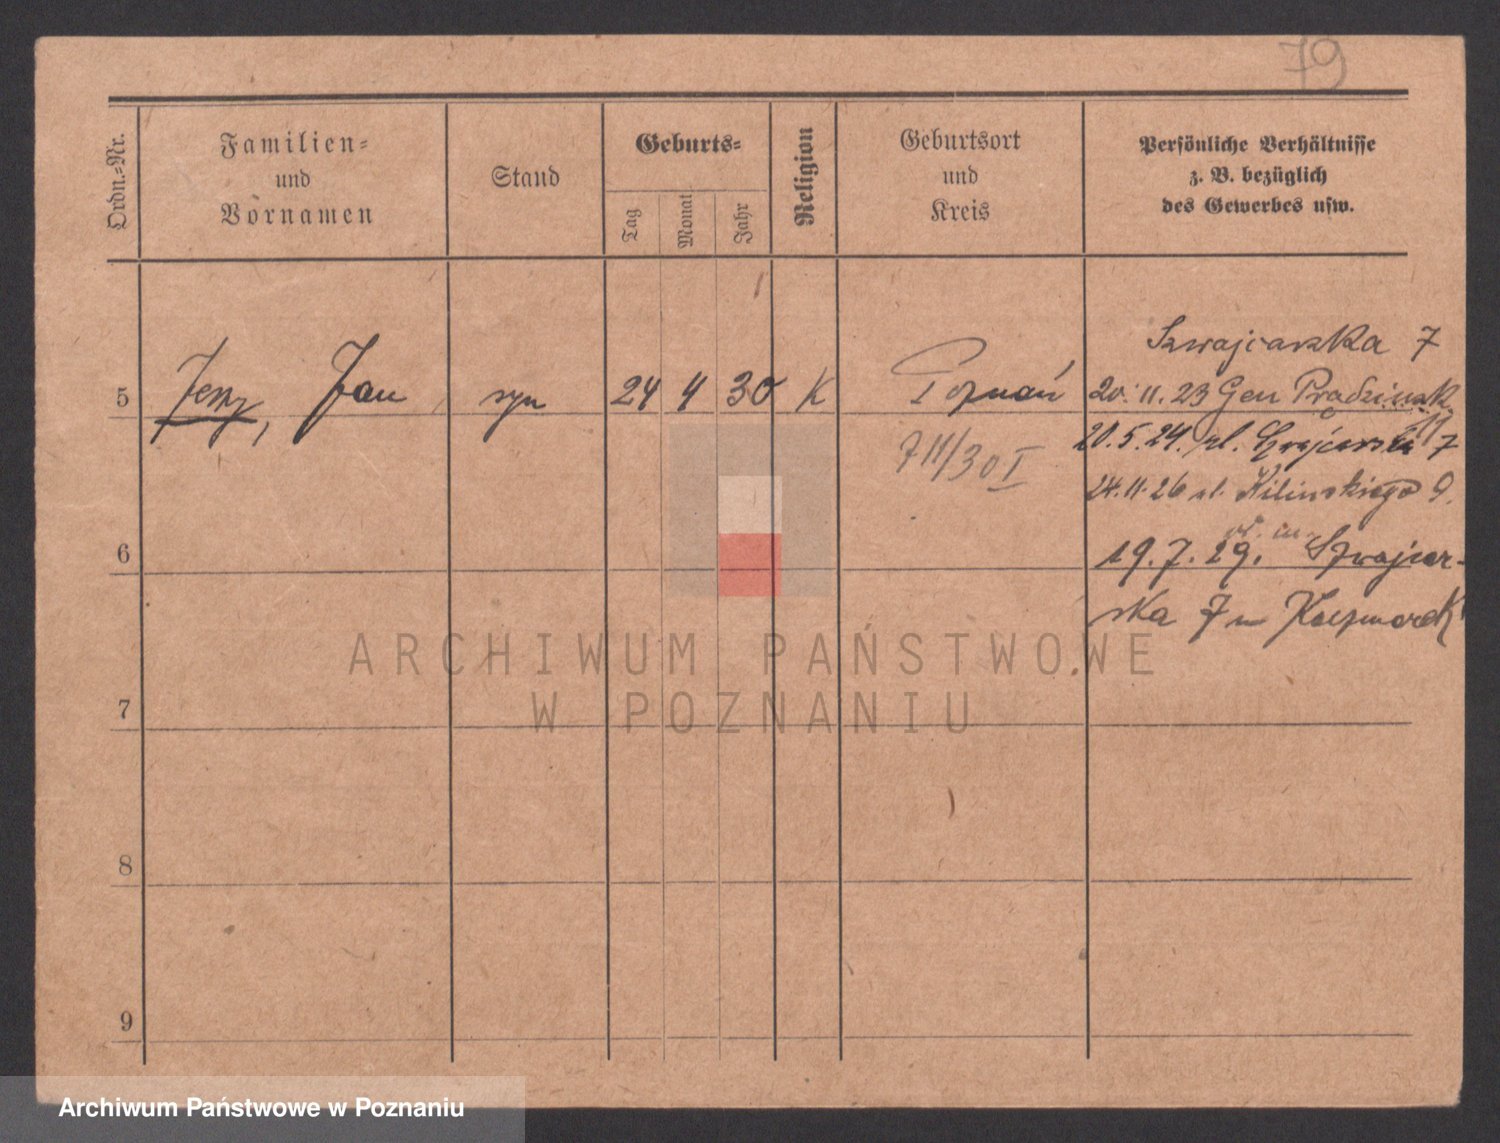 79
Ordn.-Nr.
Familien-
und
Vornamen
Stand
Geburts-
Tag
Monat
Jahr
Religion
Geburtsort
und
Kreis
Persönliche Verhältnisse
z. B. bezüglich
des Gewerbes usw.
Szwajcarska 7
5 Jerzy, Jan syn 24 4 30 K Poznań 20.11.23 Gen Prądzińsk.
711/30 I
20.5.24. ul. Szwajcarska 7
24.11.26 ul. Kilińskiego 9.
6
19.7.29. Szwajcar-
ska 7 u Kaczmarek
ARCHIWUM PAŃSTWOWE
W POZNANIU
7
8
9
Archiwum Państwowe w Poznaniu